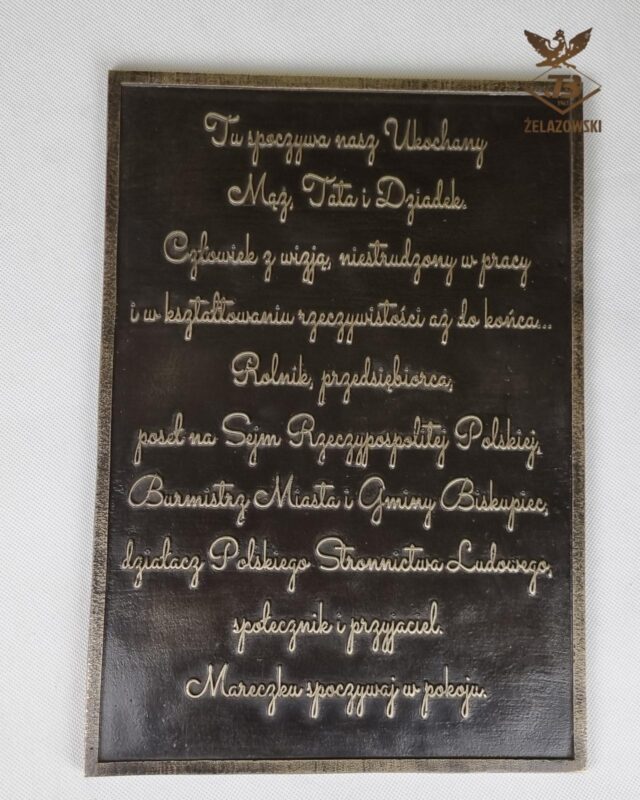 ŻELAZOWSKI
Tu spoczywa nasz Ukochany
Mąż, Tata i Dziadek.
Człowiek z wizją, niestrudzony w pracy
i w kształtowaniu rzeczywistości aż do końca...
Rolnik, przedsiębiorca,
poseł na Sejm Rzeczypospolitej Polskiej,
Burmistrz Miasta i Gminy Biskupiec,
działacz Polskiego Stronnictwa Ludowego,
społecznik i przyjaciel.
Mareczku spoczywaj w pokoju.